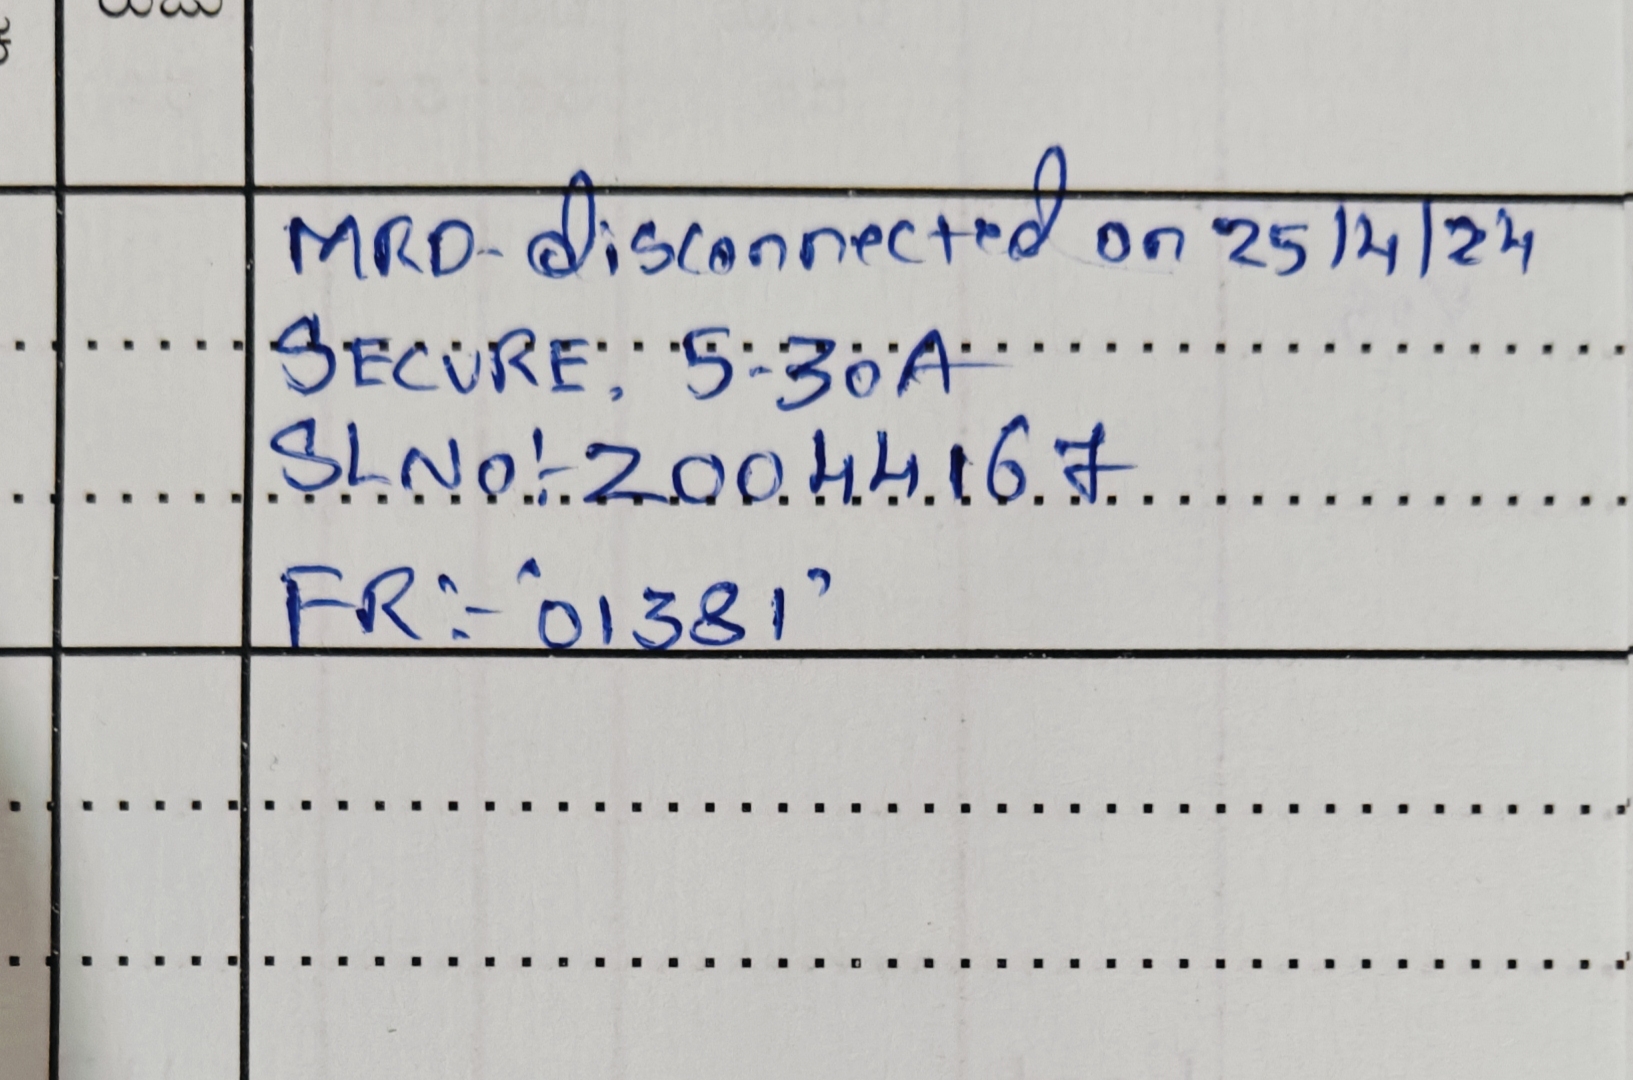 MRD- disconnected on 25/4/24
SECURE, 5-30A
SLNO:- 20044167
FR:- '01381'